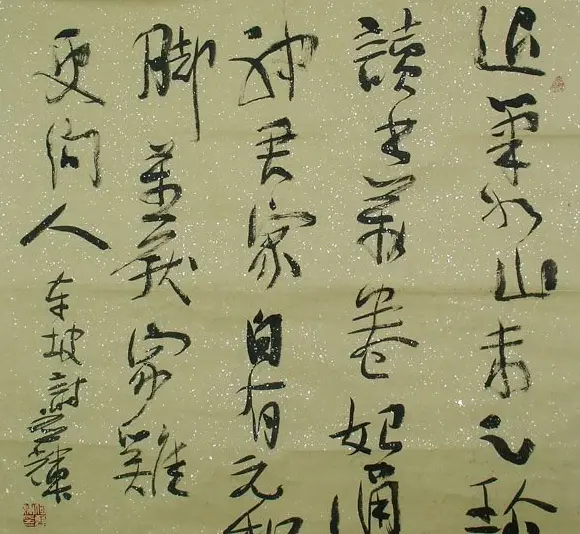 退筆如山未足珍
讀書萬卷始通
神君家自有元和
脚莫厭家雞
更問人
東坡詩